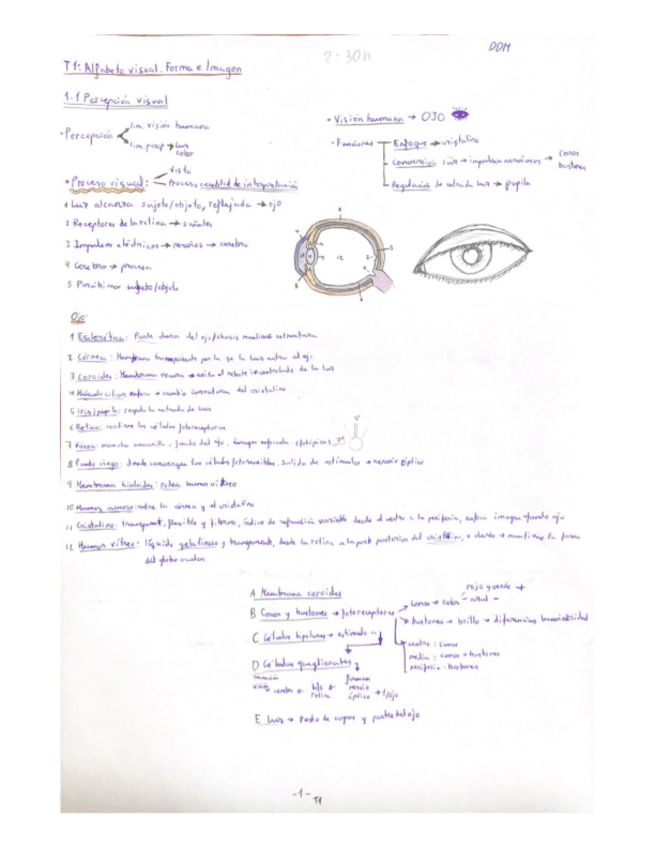 DDM
2:30h
T1: Alfabeto visual. Forma e Imagen
1.1 Percepción visual
· Percepción
lim. visión humana
lim. percep → luz
color
· Visión humana → OJO
· Funciones
Enfoque → cristalino
Conversión luz → impulsos nerviosos → conos
bastones
Regulación de entrada luz → pupila
· Proceso visual:
Vista
Proceso cerebral de interpretación
1 Luz alcanza sujeto/objeto, reflejada → ojo
2 Receptores de la retina → señales
3 Impulsos eléctricos → nervios → cerebro
4 Cerebro → procesa
5 Percibimos sujeto/objeto
Ojo:
1 Esclerótica: Parte dura del ojo/chasis mantiene estructura
2 Córnea: Membrana transparente por la que la luz entra al ojo
3 Coroides: Membrana oscura → evita el rebote incontrolado de la luz
4 Músculo ciliar: enfoca → cambio curvatura del cristalino
5 Iris/pupila: regula la entrada de luz
6 Retina: contiene las células fotorreceptoras
7 Fóvea: mancha amarilla, fondo del ojo, imagen enfocada
8 Punto ciego: donde convergen las células fotosensibles. Salida de estímulos → nervio óptico
9 Membrana hialoides: rodea humor vítreo
10 Humor acuoso: entre la córnea y el cristalino
11 Cristalino: transparente, flexible y fibroso, índice de refracción variable desde el centro a la periferia, enfoca imagen fondo ojo
12 Humor vítreo: líquido gelatinoso y transparente, desde la retina a la parte posterior del cristalino, → mantiene la forma
del globo ocular
A Membrana coroides
B Conos y bastones → fotorreceptores
conos → color
rojo y verde +
azul -
bastones → brillo → diferencias luminosidad
centro: conos
media: conos + bastones
periferia: bastones
C Células bipolares → estímulo
D Células ganglionares
cerebro
retina
forman
nervio
óptico → 1/ojo
E Luz → Resto de capas y partes del ojo
-1-
T1